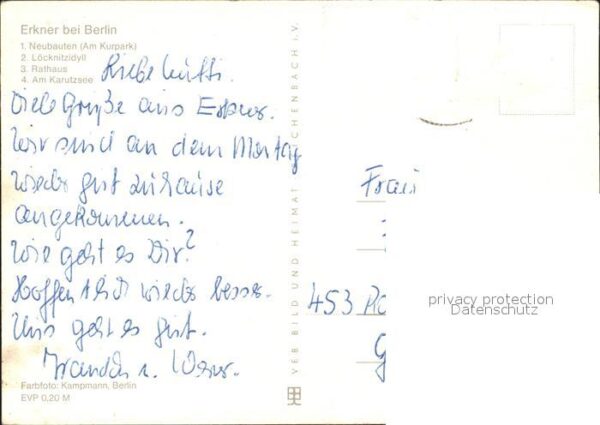 Erkner bei Berlin
1. Neubauten (Am Kurpark)
2. Löcknitzidyll
3. Rathaus
4. Am Karutzsee
Liebe Mutti.
Viele Grüße aus Erkner.
Wir sind an dem Montag
wieder gut zuhause
angekommen.
Wie geht es Dir?
Hoffentlich wieder besser.
Uns geht es gut.
u.
Farbfoto: Kampmann, Berlin
EVP 0,20 M
VEB BILD UND HEIMAT REICHENBACH i. V.
Frau
453
G
privacy protection
Datenschutz